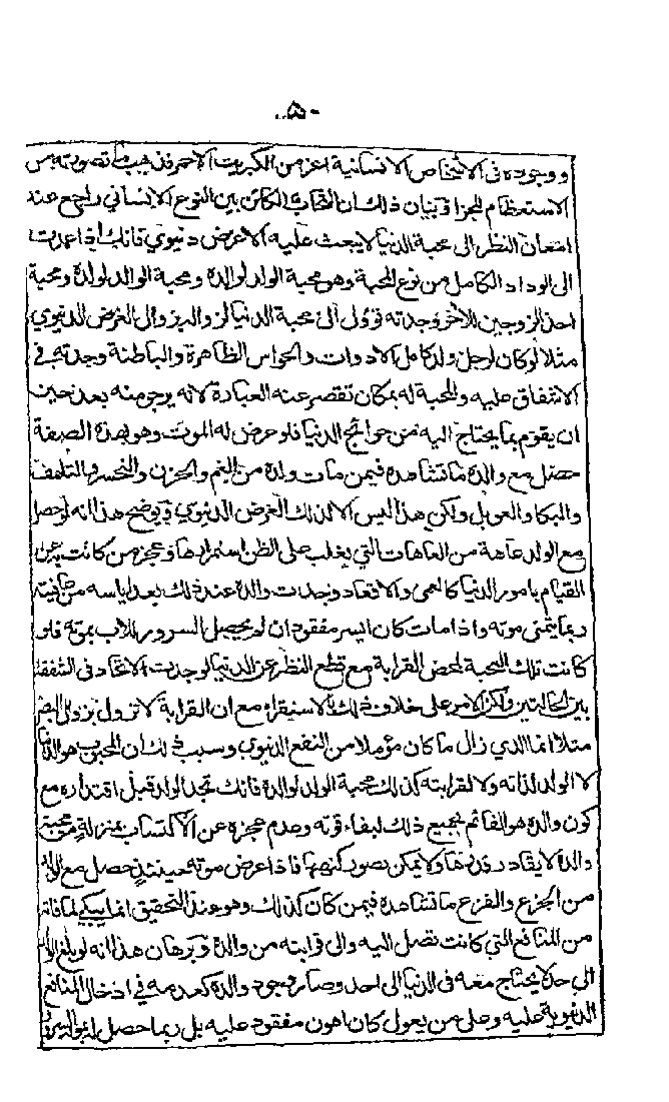 -٥٠-
ووجوده في الاشخاص الانسانية اعز من الكبريت الاحمر فذهب تصويته من
الاستعظام لجزا وبيان ذلك ان التحاب الكائن بين النوع الانساني راجع عند
امعان النظر الى محبة الدنيا لا يبعث عليه الا عرض دنيوي فانك اذا عمدت
الى الوداد الكامل من نوع المحبة وهو محبة الولد لوالده ومحبة الوالد لولده ومحبة
احد الزوجين للاخر وجدته يؤل الى محبة الدنيا لزواله بزوال الغرض الدنيوي
مثلا لو كان لرجل ولد كامل الادوات والحواس الظاهرة والباطنة وجدته في
الاشفاق عليه والمحبة له بمكان تقصر عنه العبارة لانه يرجو منه بعد حين
ان يقوم بما يحتاج اليه من حوائج الدنيا فلو عرض له الموت وهو بهذه الصفة
حصل مع والده ما تشاهده فيمن مات ولده من الغم والحزن والتحسر والتلهف
والبكا والعويل ولكن هذا ليس الا لذلك الغرض الدنيوي يوضح هذا انه لو حصل
مع الولد عاهة من العاهات التي يغلب على الظن استمرارها وعجز من كانت به عن
القيام بامور الدنيا كالعمى والاقعاد وجدت والده عند ذلك بعد اياسه من عافيته
ربما يتمنى موته واذا مات كان ايسر مفقود ان لم يحصل السرور للاب بموته فلو
كانت تلك المحبة لمحض القرابة مع قطع النظر عن الدنيا لوجدت الاتحاد في الشفقة
بين الحالتين ولكن الامر على خلاف ذلك بالاستقراء مع ان القرابة لا تزول بزوال البصر
مثلا انما الذي زال ما كان مؤملا من النفع الدنيوي وسبب ذلك ان المحبوب هو الدنيا
لا الولد لذاته ولا لقرابته كذلك محبة الولد لوالده فانك تجد الولد قبل اقتداره مع
كون والده هو القائم بجميع ذلك لبقاء قوته وعدم عجزه عن الاكتساب بمنزلة من محبة
والده لا يقادر قدرها ولا يمكن تصور كنهها فاذا عرض موته حينئذ حصل مع الولد
من الجزع والفزع ما تشاهده فيمن كان كذلك وهو عند التحقيق انما يبكي لما فاته
من المنافع التي كانت تصل اليه والى قرابته من والده وبرهان هذا انه لو بلغ الولد
الى حد لا يحتاج معه في الدنيا الى احد وصار وجود والده كعدمه في ادخال المنافع
الدنيوية عليه وعلى من يعول كان اهون مفقود عليه بل ربما حصل له